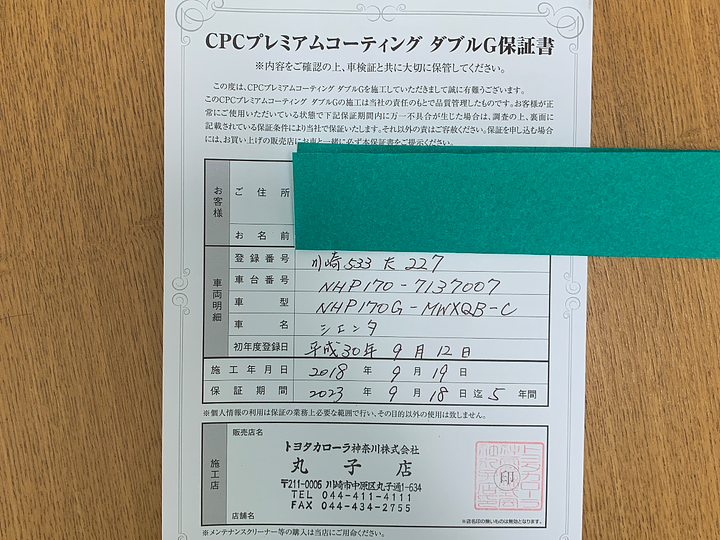 CPCプレミアムコーティング ダブルG保証書
※内容をご確認の上、車検証と共に大切に保管してください。
この度は、CPCプレミアムコーティング ダブルGを施工していただきまして誠に有難うございます。
このCPCプレミアムコーティング ダブルGの施工は当社の責任のもとで品質管理したものです。お客様が正
常にご使用いただいている状態で下記保証期間内に万一不具合が生じた場合は、調査の上、裏面に
記載されている保証条件により当社で保証いたします。それ以外の責はご容赦ください。保証を申し込む場合
には、お買い上げの販売店にお車と一緒に必ず本保証書をご提示ください。
お客様
ご住所
お名前
車両明細
登録番号 川崎533 た 227
車台番号 NHP170-7137007
車型 NHP170G-MWXQB-C
車名 シエンタ
初年度登録日 平成30年 9月12日
施工年月日 2018年 9月19日
保証期間 2023年 9月18日迄 5年間
※個人情報の利用は保証の業務上必要な範囲で行い、その目的以外の使用は致しません。
施工店
販売店名
トヨタカローラ神奈川株式会社
丸子店
〒211-0006 川崎市中原区丸子通1-634
TEL 044-411-4111
FAX 044-434-2755
印
店舗名
※店名印の無いものは無効となります。
※メンテナンスクリーナー等の購入は当店にご用命ください。